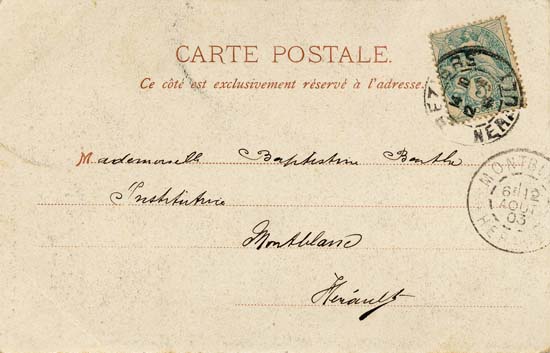 CARTE POSTALE.
Ce côté est exclusivement réservé à l'adresse.
BEZIERS
HERAULT
Mademoiselle Baptistine Barthe
Institutrice
Montblanc
Hérault
MONTBL
6 12
AOUT
03
HERAULT